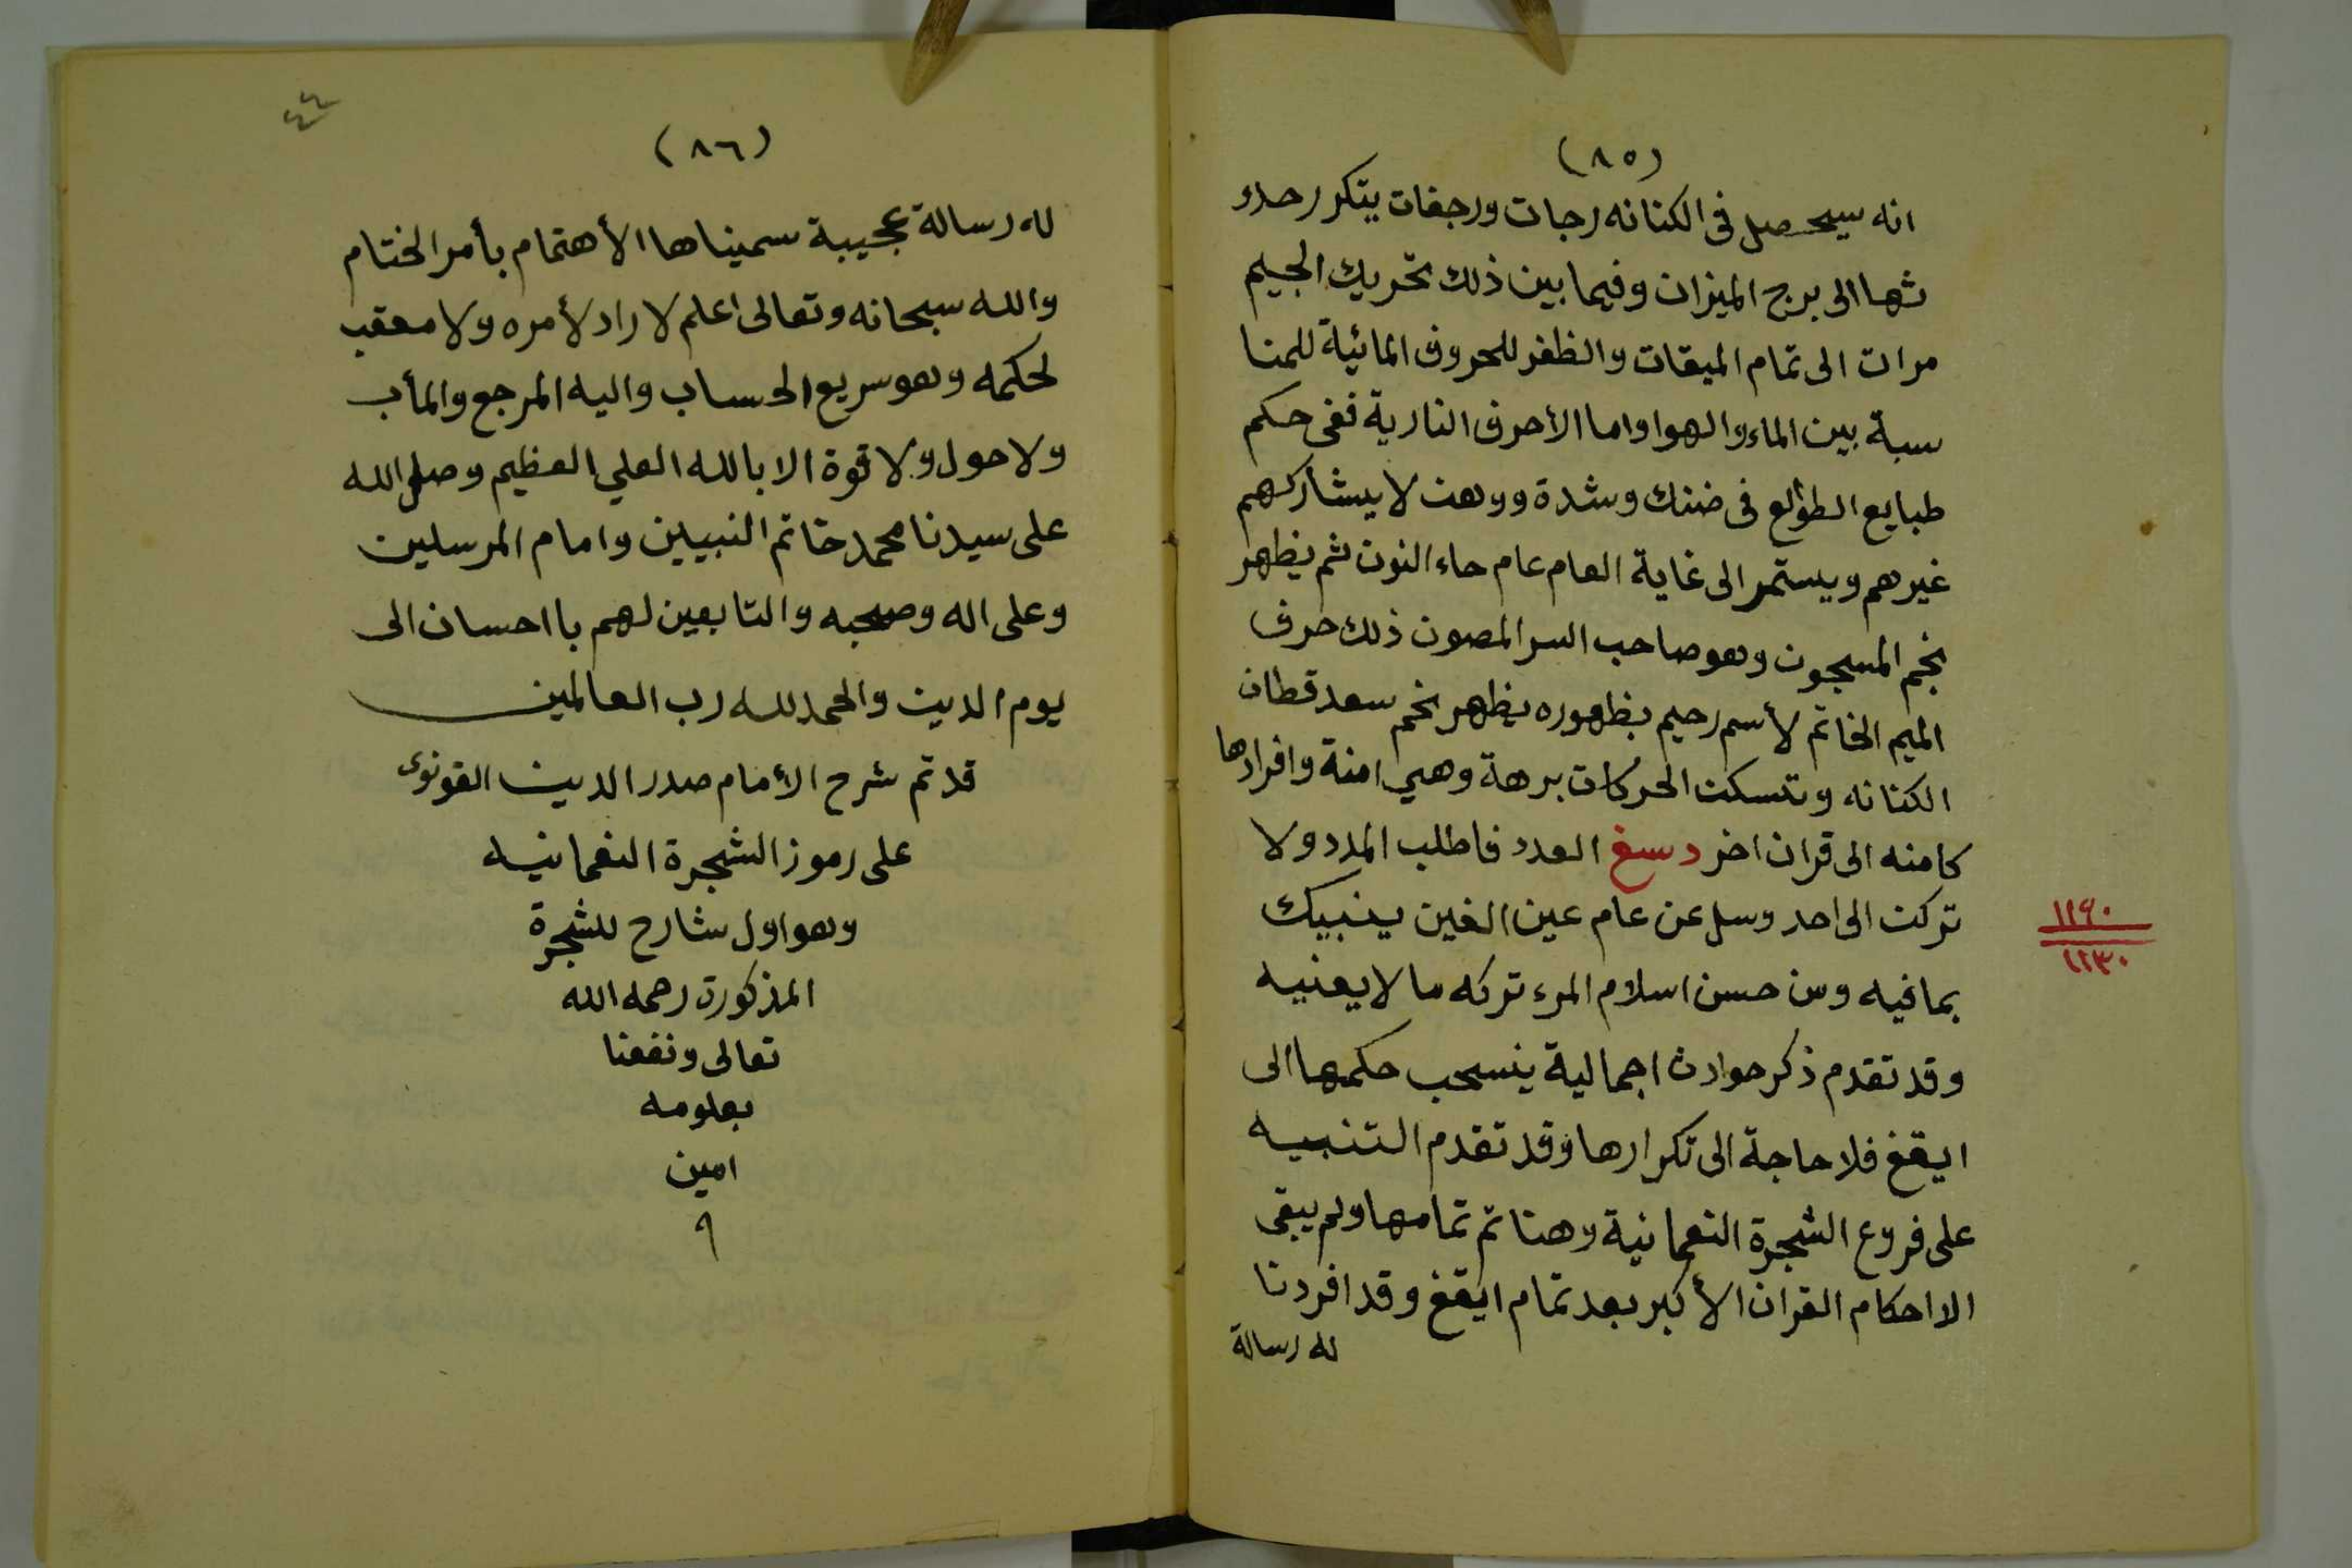 (٨٥)
انه سيحصل فى الكنانه رجات ورجفات يتكرر حدو
ثها الى برج الميزان وفيما بين ذلك تحريك الجيم
مرات الى تمام الميقات والظفر للحروف المائية للمنا
سبة بين الماء والهوا واما الأحرف النارية ففى حكم
طبايع الطؤلع فى ضنك وشدة ووهن لا يشاركهم
غيرهم ويستمر الى غاية العام عام حاء النون ثم يظهر
نجم المسجون وهو صاحب السر المصون ذلك حرف
الميم الخاتم لأسم رحيم بظهوره يظهر نجم سعد قطان
الكنانه وتسكن الحركات برهة وهي امنة وافرادها
كامنه الى قران اخر دسغ العدد فاطلب المدد ولا
تركن الى احد وسل عن عام عين الغين ينبيك
بما فيه ومن حسن اسلام المرء تركه ما لا يعنيه
وقد تقدم ذكر حوادث اجمالية ينسحب حكمها الى
ايقغ فلا حاجة الى تكرارها وقد تقدم التنبيه
على فروع الشجرة النعمانية وهنا تم تمامها ولم يبقى
الا احكام القران الأكبر بعد تمام ايقغ وقد افردنا
له رسالة
١١٩٠
١٢٣٠
٤٤
(٨٦)
له رسالة عجيبة سميناها الأهتمام بأمر الختام
والله سبحانه وتعالى اعلم لا راد لأمره ولا معقب
لحكمه وهو سريع الحساب واليه المرجع والمأب
ولا حول ولا قوة الا بالله العلي العظيم وصلى الله
على سيدنا محمد خاتم النبيين وامام المرسلين
وعلى اله وصحبه والتابعين لهم بااحسان الى
يوم الدين والحمد لله رب العالمين
قد تم شرح الأمام صدر الدين القونوى
على رموز الشجرة النعمانيه
وهو اول شارح للشجرة
المذكورة رحمه الله
تعالى ونفعنا
بعلومه
امين
٩